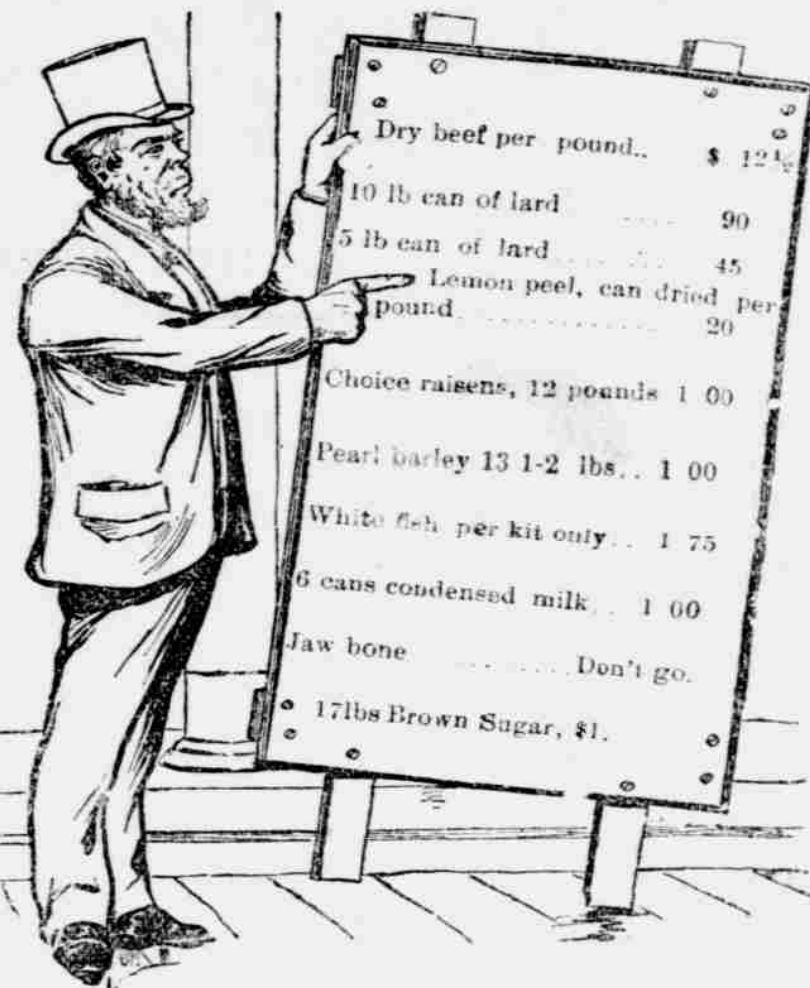 Dry beef per pound.. $ 12½
10 lb can of lard ..... 90
5 lb can of lard ..... 45
Lemon peel, can dried per
pound ............. 20
Choice raisens, 12 pounds 1 00
Pearl barley 13 1-2 lbs.. 1 00
White fish per kit only.. 1 75
6 cans condensed milk.. 1 00
Jaw bone ......... Don't go.
17lbs Brown Sugar, $1.